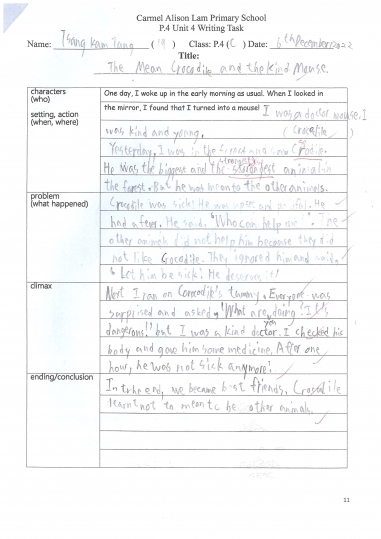 Carmel Alison Lam Primary School
P.4 Unit 4 Writing Task
Name: Tsang Kam Tung (19) Class: P.4 (C) Date: 6th December 2022
Title:
The Mean Crocodile and the Kind Mouse.
characters
(who)
setting, action
(when, where)
One day, I woke up in the early morning as usual. When I looked in
the mirror, I found that I turned into a mouse! I was a doctor mouse. I
was kind and young. (Crocodile
Yesterday, I was in the forest and saw Crodile.
strongest
He was the biggest and the strongest animal in
the forest. But he was mean to the other animals.
problem
(what happened)
Crocodile was sick! He was upset and He
had a fever. He said, "Who can help me". The
other animals did not help him because they did
not like Crocodile. They ignored him and said,
"Let him be sick! He deserves it!"
climax
Next I ran on Crocodile's tummy. Everyone was
surprised and asked, "What are you doing! It's
dangerous!" but I was a kind doctor. I checked his
body and gave him some medicine. After one
hour, he was not sick anymore!
ending/conclusion
In the end, we became best friends. Crocodile
learnt not to mean to be other animals.
11